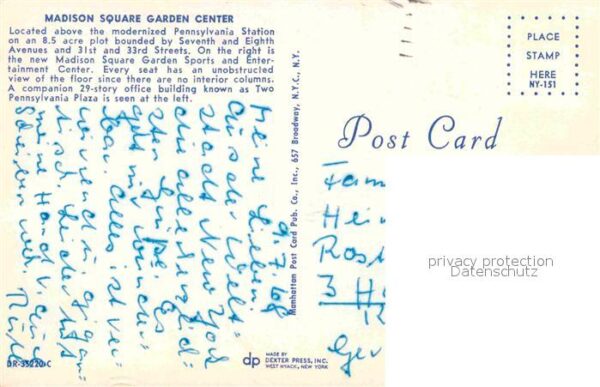 MADISON SQUARE GARDEN CENTER
Located above the modernized Pennsylvania Station
on an 8.5 acre plot bounded by Seventh and Eighth
Avenues and 31st and 33rd Streets. On the right is
the new Madison Square Garden Sports and Enter-
tainment Center. Every seat has an unobstructed
view of the floor since there are no interior columns.
A companion 29-story office building known as Two
Pennsylvania Plaza is seen at the left.
PLACE
STAMP
HERE
NY-151
Post Card
Manhattan Post Card Pub. Co., Inc., 657 Broadway, N.Y.C., N.Y.
9.7.68
Meine Lieben,
Aus der Welt-
stadt New York
die allerherzlich-
sten Grüße. Es
geht mir wunder-
bar. Alles ist ver-
wirrend u. gigan-
tisch. Leider tut
meine Hand v.
Schreiben weh.
Fam
Hei
Rost
3 H
Ger
privacy protection
Datenschutz
DR-35220-C
dp
MADE BY
DEXTER PRESS, INC.
WEST NYACK, NEW YORK